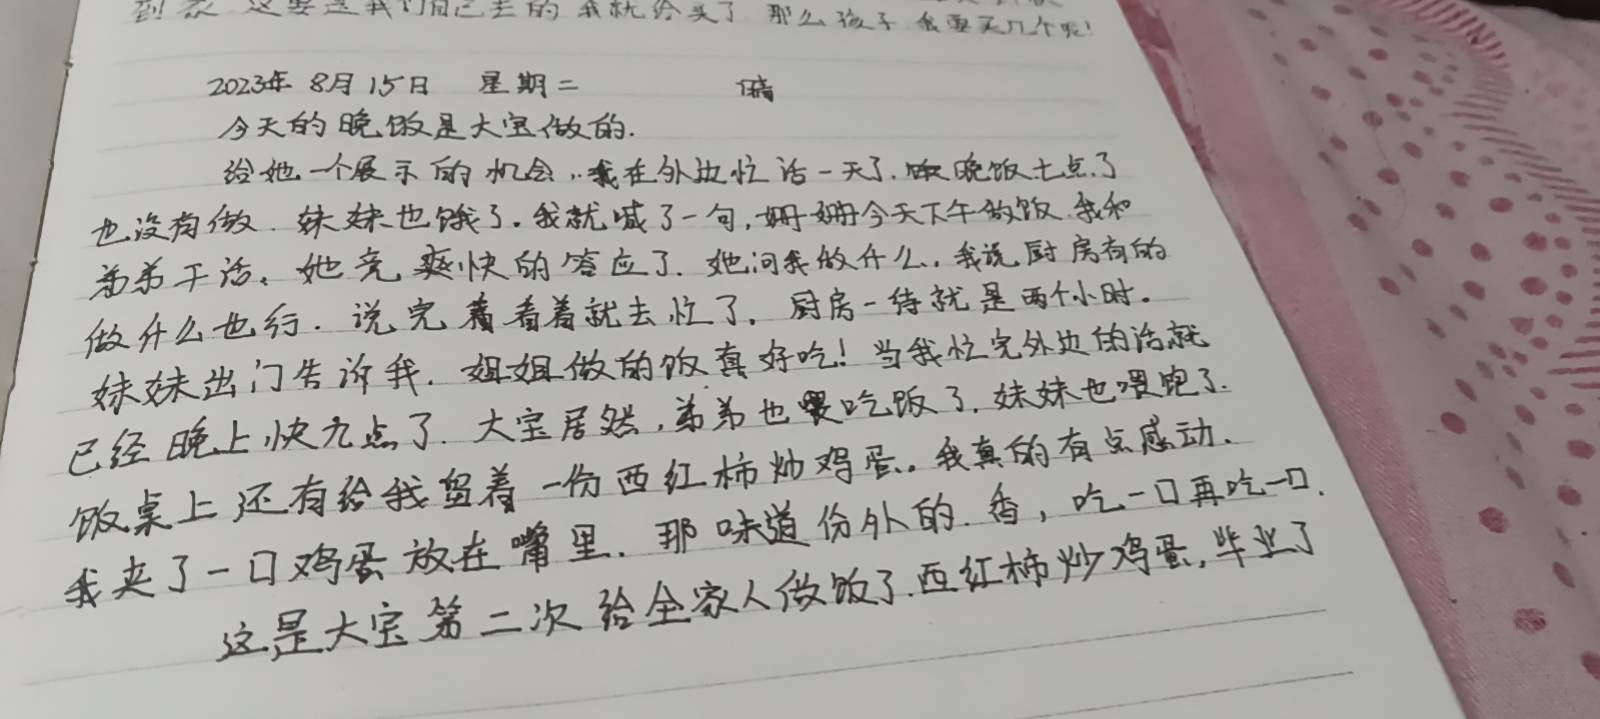 到家 这要是我们自己去的 我就给买了 那么孩子 我要买几个呢!
2023年 8月15日 星期二 晴
今天的晚饭是大宝做的.
给她一个展示的机会,.我在外边忙活一天了.晚饭七点了
也没有做.妹妹也饿了.我就喊了一句,姗姗今天下午做饭.我和
弟弟干活.她竟爽快的答应了.她问我做什么.我说厨房有的
做什么也行.说完看着就去忙了.厨房一待就是两个小时.
妹妹出门告诉我.姐姐做的饭真好吃!当我忙完外边的活就
已经晚上快九点了.大宝居然,弟弟也喂吃饭了.妹妹也喂饱了.
饭桌上还有给我留着一份西红柿炒鸡蛋.我真的有点感动.
我夹了一口鸡蛋放在嘴里.那味道份外的.香,吃一口再吃一口.
这是大宝第二次给全家人做饭了.西红柿炒鸡蛋.毕业了